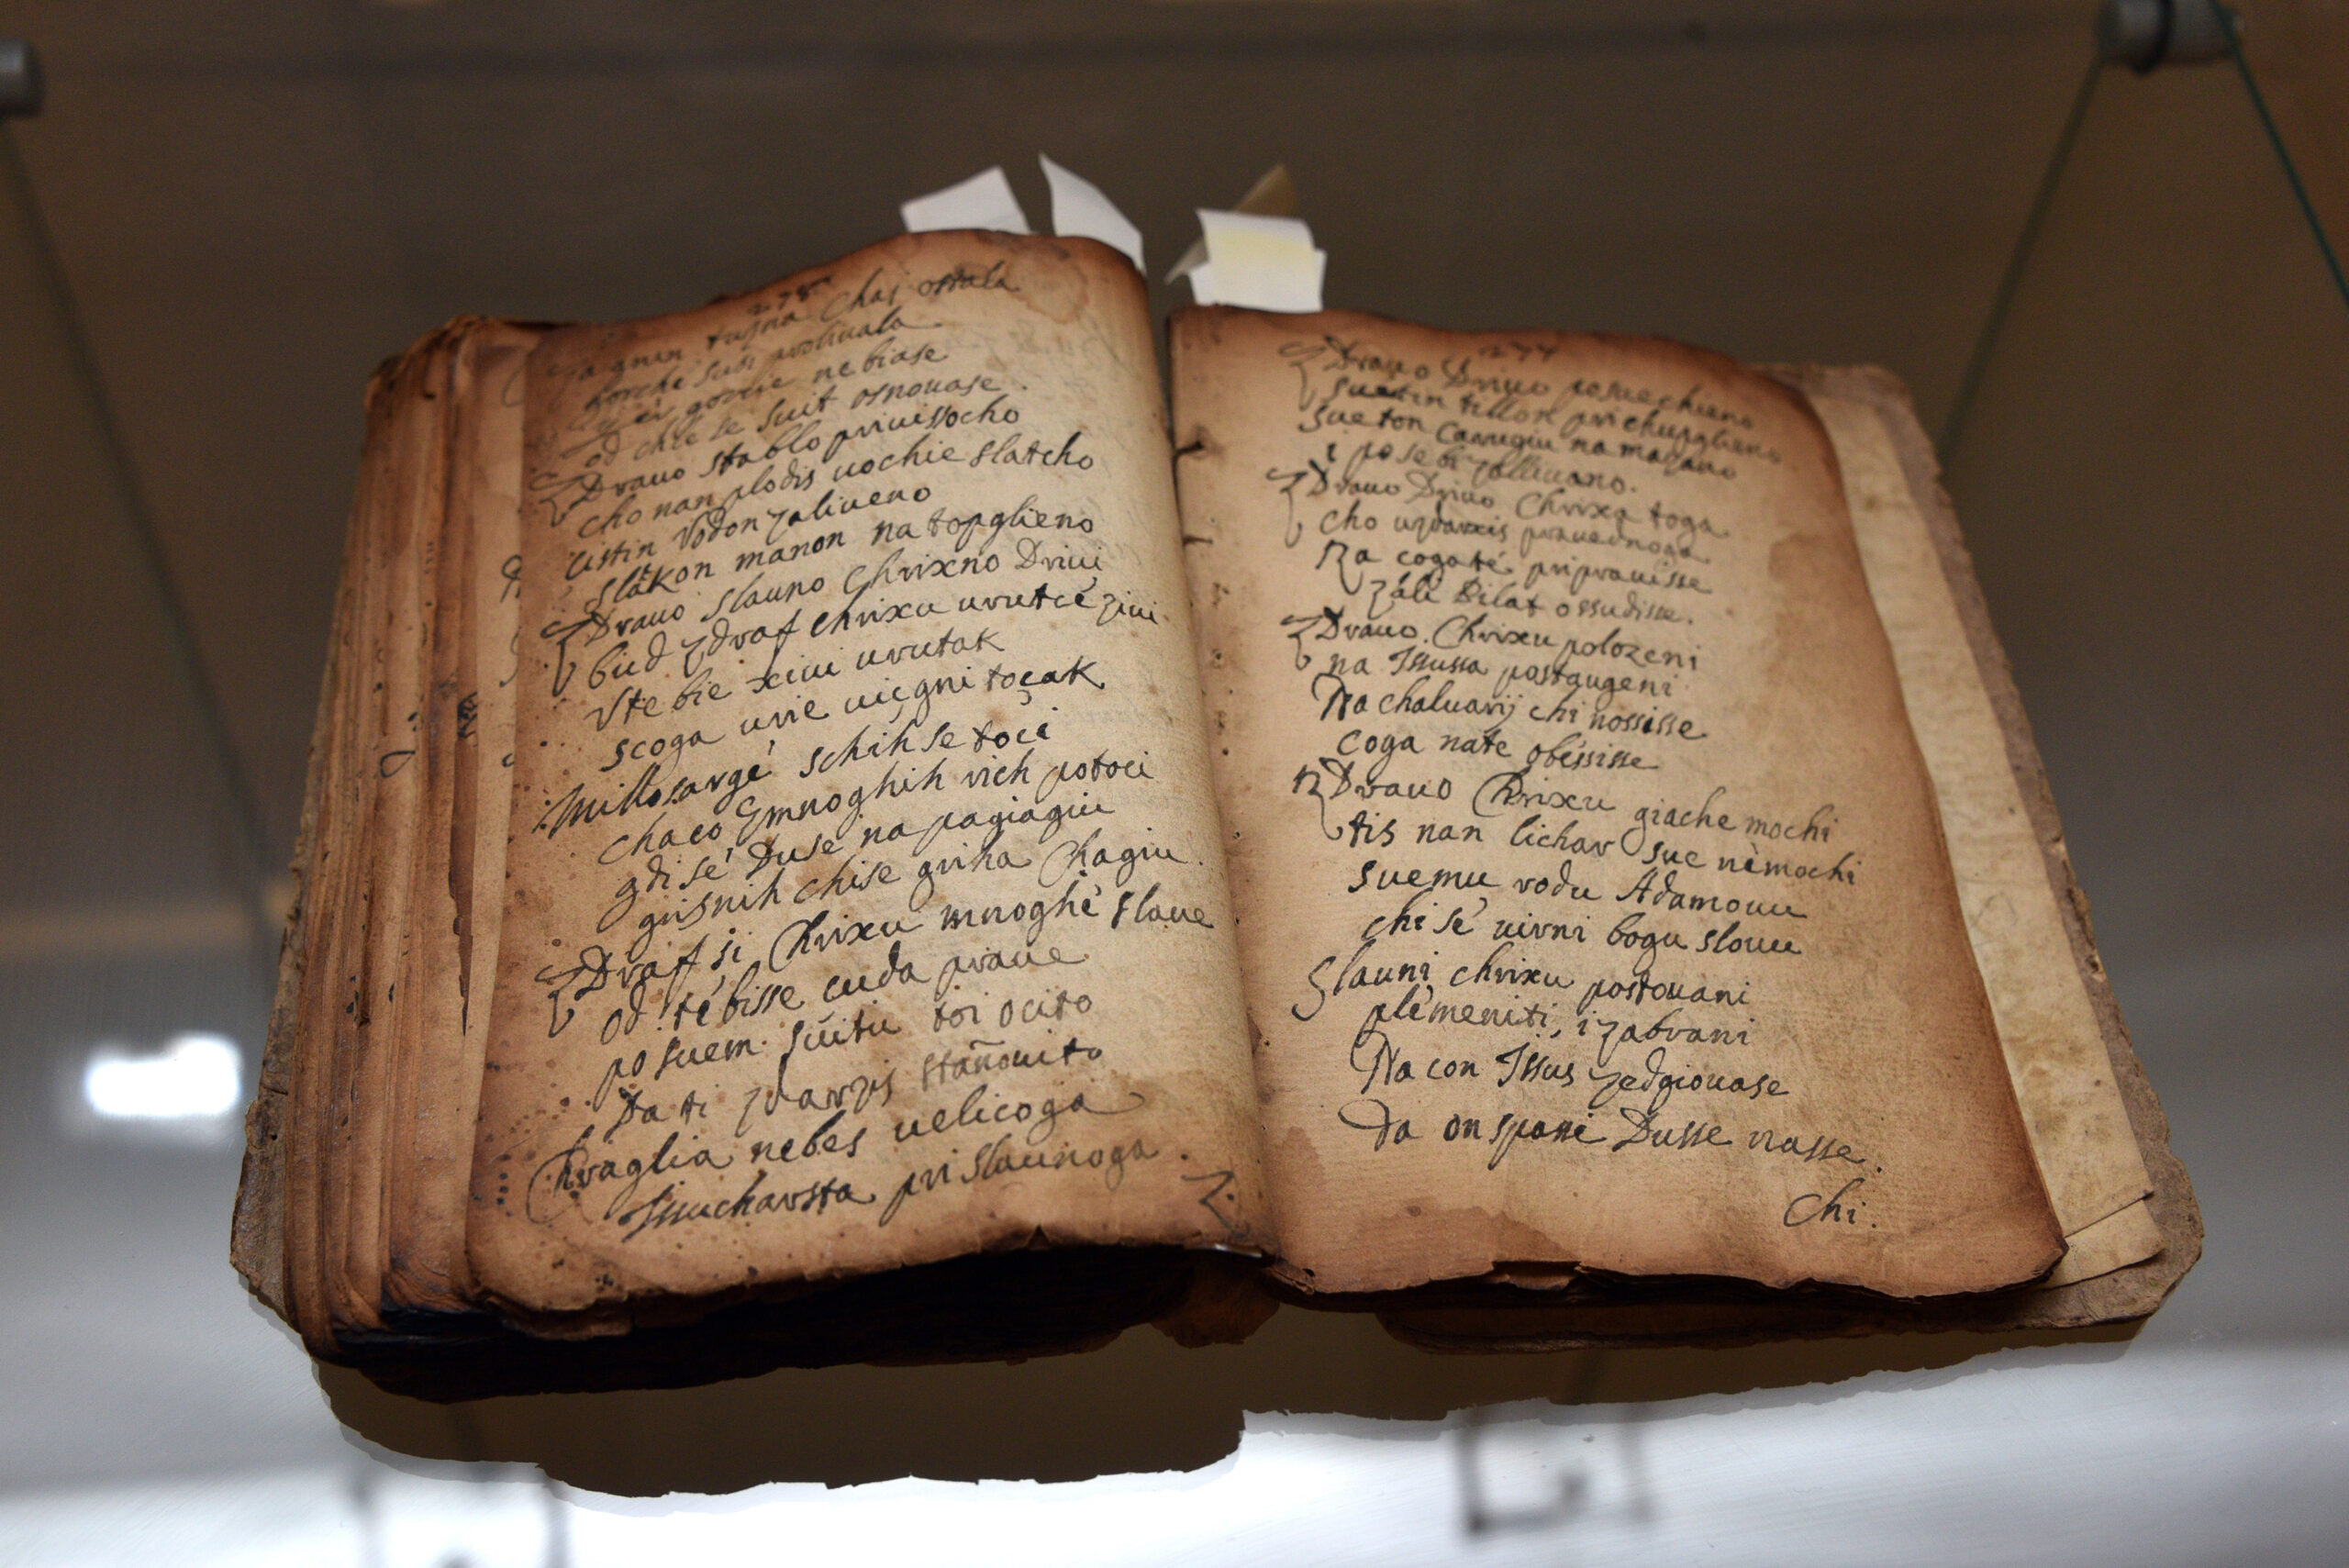 278
tuxna Chaj ostala
gorche suzi prolivala
gorcie ne biase
od chle se suit osnouase.
Zdrauo stablo priuissocho
cho nan plodis uochie slatcho
cistin Vodon zaliueno
slakon manon natopglieno
Zdrauo slauno Chrixno Driui
bud zdraf chrixu urutcè ziui
V te bie xiui urutak
scoga urie uiçgni toçak
Millosargè schih se toci
chaco zmnoghih rich potoci
gdi sè Duse na pagiagiu
grisnih chise griha Chagiu.
Zdraf si Chrixu mnoghè slaue
od tè bisse cuda praue
po suem suitu toi ocito
Da ti zdarxis stanouito
Chraglia nebes uelicoga
Issucharsta pri slaunoga.
Z.
277
Zdrauo Driuo posuechieno
suetin tillon prichupglieno
sueton Carugiu na mazano
i po sebi zalliuano.
Zdrauo Driuo Chrixa toga
cho uzdarxis prauednoga
Na cogatè priprauisse
zali Pilat ossudisse.
Zdrauo Chrixu polozeni
na Issussa postaugeni
Na chaluarij chi nossisse
coga nate obèssisse
Zdrauo Chrixu giache mochi
tis nan lichar sue nèmochi
suemu rodu Adamouu
chi sè uirni bogu slouu
Slauni chrixu postouani
plèmeniti, i zabrani
Na con Issus zedgiouase
Da on spase Dusse nasse.
Chi.